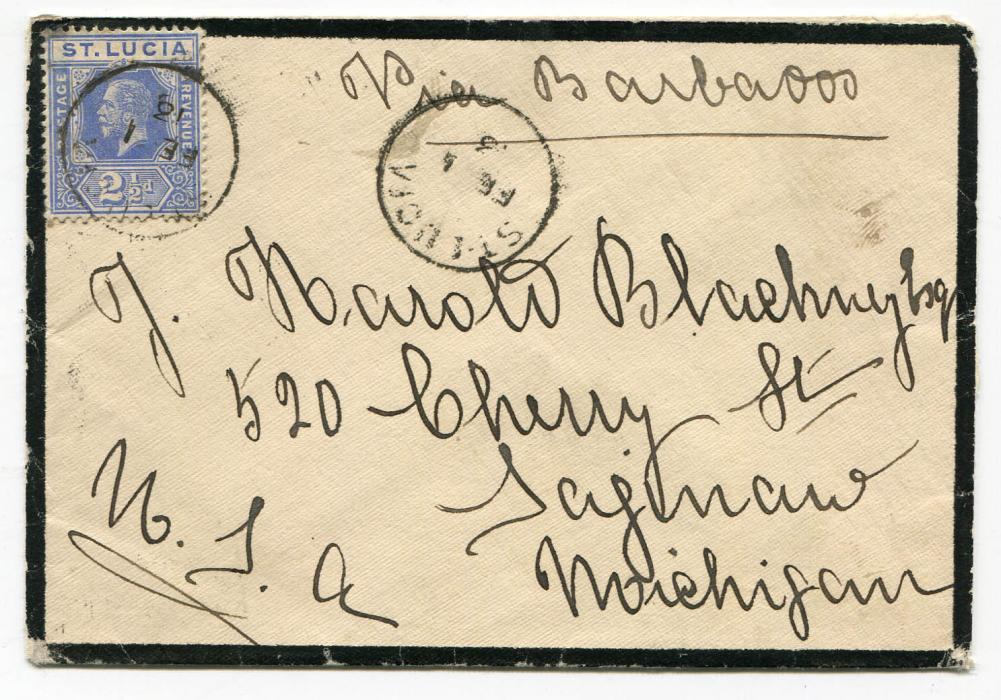 ST. LUCIA
POSTAGE
REVENUE
2½d
Via Barbados
ST. LUCIA
FE 1
J. Harold Blackney Esq
520 Cherry St
Saginaw
Michigan
U. S. A